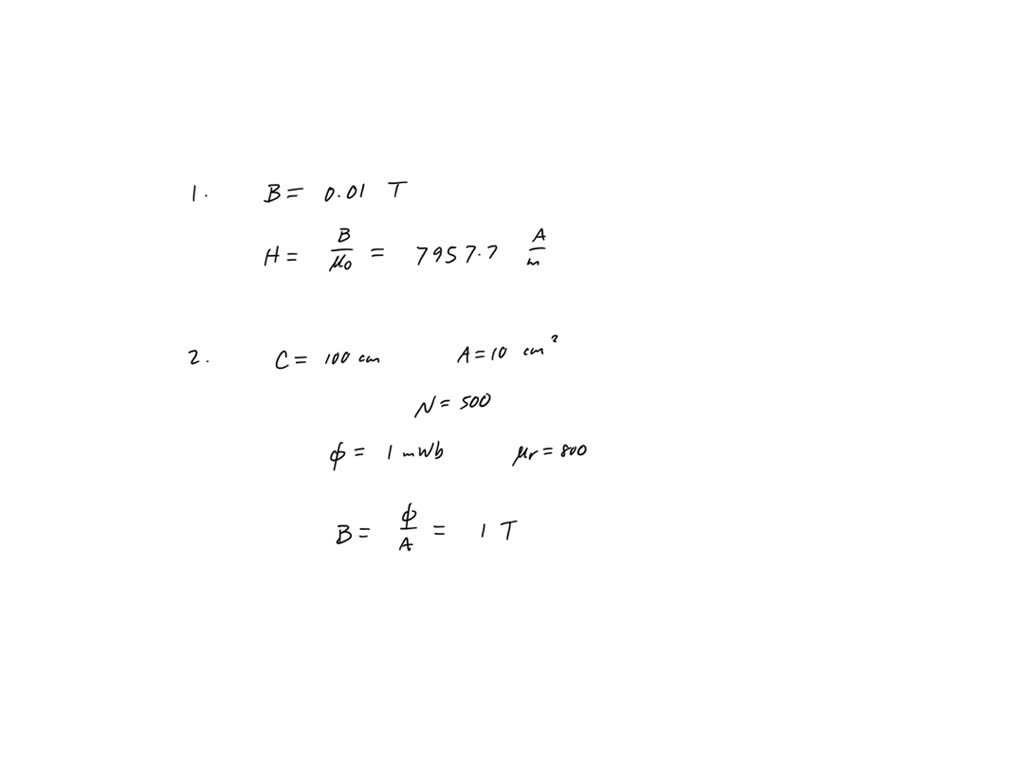 1. B = 0.01 T
H = B/μ0 = 7957.7 A/m
2. C = 100 cm A = 10 cm²
N = 500
ϕ = 1 mWb μr = 800
B = ϕ/A = 1 T